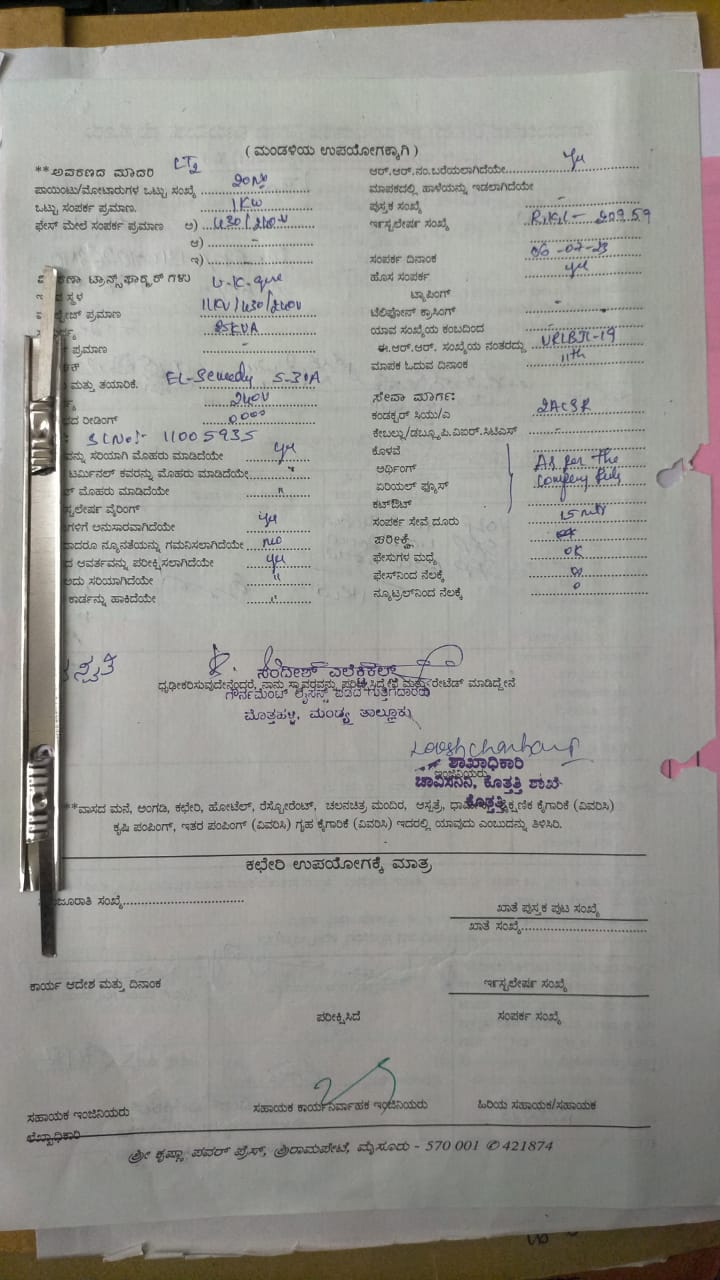 ( ಮಂಡಳಿಯ ಉಪಯೋಗಕ್ಕಾಗಿ )
**ಅವಕರಣದ ಮಾದರಿ LT2
ಪಾಯಿಂಟು/ಮೋಟಾರುಗಳ ಒಟ್ಟು ಸಂಖ್ಯೆ 20 No
ಒಟ್ಟು ಸಂಪರ್ಕ ಪ್ರಮಾಣ. 1KW
ಫೇಸ್ ಮೇಲೆ ಸಂಪರ್ಕ ಪ್ರಮಾಣ ಅ) 430/240V
ಆ) -
ಇ) -
ಟ್ರಾನ್ಸ್‌ಫಾರ್ಮರ್ ಗಳು
ಸ್ಥಳ
ಪ್ರಮಾಣ 11KV/430/240V
25KVA
ಪ್ರಮಾಣ -
ಮತ್ತು ತಯಾರಿಕೆ. 5-30A
240V
ರೀಡಿಂಗ್ 0000
: SL No:- 11005935
ವನ್ನು ಸರಿಯಾಗಿ ಮೊಹರು ಮಾಡಿದೆಯೇ yes
ಟರ್ಮಿನಲ್ ಕವರನ್ನು ಮೊಹರು ಮಾಡಿದೆಯೇ "
ಮೊಹರು ಮಾಡಿದೆಯೇ "
ಸ್ಟಲೇರ್ಷ ವೈರಿಂಗ್
ಗಳಿಗೆ ಅನುಸಾರವಾಗಿದೆಯೇ yes
ದಾದರೂ ನ್ಯೂನತೆಯನ್ನು ಗಮನಿಸಲಾಗಿದೆಯೇ no
ದ ಆವರ್ತವನ್ನು ಪರೀಕ್ಷಿಸಲಾಗಿದೆಯೇ yes
ಅದು ಸರಿಯಾಗಿದೆಯೇ "
ಕಾರ್ಡನ್ನು ಹಾಕಿದೆಯೇ "
ಆರ್.ಆರ್.ನಂ.ಬರೆಯಲಾಗಿದೆಯೇ yes
ಮಾಪಕದಲ್ಲಿ ಹಾಳೆಯನ್ನು ಇಡಲಾಗಿದೆಯೇ
ಪುಸ್ತಕ ಸಂಖ್ಯೆ -
ಇನ್ಸ್ಟಲೇರ್ಷ ಸಂಖ್ಯೆ 20959
ಸಂಪರ್ಕ ದಿನಾಂಕ 06-07-23
ಹೊಸ ಸಂಪರ್ಕ yes
ಟ್ಯಾಪಿಂಗ್
ಟೆಲಿಫೋನ್ ಕ್ರಾಸಿಂಗ್ -
ಯಾವ ಸಂಖ್ಯೆಯ ಕಂಬದಿಂದ -
ಈ.ಆರ್.ಆರ್. ಸಂಖ್ಯೆಯ ನಂತರದ್ದು
ಮಾಪಕ ಓದುವ ದಿನಾಂಕ 11th
ಸೇವಾ ಮಾರ್ಗ:
ಕಂಡಕ್ಟರ್ ಸಿಯು/ಎ 2ACSR
ಕೇಬಲ್ಲು/ಡಬ್ಲ್ಯೂ.ಪಿ.ಐಆರ್.ಸಿಟಿಎಸ್ -
ಕೊಳವೆ
ಅರ್ಥಿಂಗ್ As per the
ಏರಿಯಲ್ ಫ್ಯೂಸ್ Company
ಕಟ್‌ಔಟ್
ಸಂಪರ್ಕ ಸೇವೆ ದೂರು 15 mtr
ಪರೀಕ್ಷೆ
ಫೇಸುಗಳ ಮಧ್ಯೆ OK
ಫೇಸ್‌ನಿಂದ ನೆಲಕ್ಕೆ
ನ್ಯೂಟ್ರಲ್‌ನಿಂದ ನೆಲಕ್ಕೆ
ಸಂದೀಶ್ ಎಲೆಕ್ಟ್ರಿಕಲ್ಸ್
ಧೃಢೀಕರಿಸುವುದೇನೆಂದರೆ, ನಾನು ಸ್ಥಾವರವನ್ನು ಪರೀಕ್ಷಿಸಿದ್ದೇನೆ ಮತ್ತು ರೇಟೆಡ್ ಮಾಡಿದ್ದೇನೆ
ಗೌರ್ನಮೆಂಟ್ ಲೈಸನ್ಸ್ ಪಡೆದ ಗುತ್ತಿಗೆದಾರರು
ಮೊತ್ತಹಳ್ಳಿ, ಮಂಡ್ಯ ತಾಲ್ಲೂಕು
ಶಾಖಾಧಿಕಾರಿ
ಇಂಜಿನಿಯರು
ಚಾವಿಸನಿನಿ, ಕೊತ್ತತ್ತಿ ಶಾಖೆ
ಕೊತ್ತತ್ತಿ
**ವಾಸದ ಮನೆ, ಅಂಗಡಿ, ಕಛೇರಿ, ಹೋಟೆಲ್, ರೆಸ್ಟೋರೆಂಟ್, ಚಲನಚಿತ್ರ ಮಂದಿರ, ಆಸ್ಪತ್ರೆ, ಕೈಗಾರಿಕೆ (ವಿವರಿಸಿ)
ಕೃಷಿ ಪಂಪಿಂಗ್, ಇತರ ಪಂಪಿಂಗ್ (ವಿವರಿಸಿ) ಗೃಹ ಕೈಗಾರಿಕೆ (ವಿವರಿಸಿ) ಇದರಲ್ಲಿ ಯಾವುದು ಎಂಬುದನ್ನು ತಿಳಿಸಿರಿ.
ಕಛೇರಿ ಉಪಯೋಗಕ್ಕೆ ಮಾತ್ರ
ಜೂರಾತಿ ಸಂಖ್ಯೆ
ಖಾತೆ ಪುಸ್ತಕ ಪುಟ ಸಂಖ್ಯೆ
ಖಾತೆ ಸಂಖ್ಯೆ
ಕಾರ್ಯ ಆದೇಶ ಮತ್ತು ದಿನಾಂಕ
ಇನ್ಸ್ಟಲೇರ್ಷ ಸಂಖ್ಯೆ
ಪರೀಕ್ಷಿಸಿದೆ
ಸಂಪರ್ಕ ಸಂಖ್ಯೆ
ಸಹಾಯಕ ಇಂಜಿನಿಯರು
ಸಹಾಯಕ ಕಾರ್ಯನಿರ್ವಾಹಕ ಇಂಜಿನಿಯರು
ಹಿರಿಯ ಸಹಾಯಕ/ಸಹಾಯಕ
ಲೆಖ್ಖಾಧಿಕಾರಿ
ಶ್ರೀ ಕೃಷ್ಣಾ ಪವರ್ ಪ್ರೆಸ್, ಶ್ರೀರಾಮಪೇಟೆ, ಮೈಸೂರು - 570 001 ✆ 421874